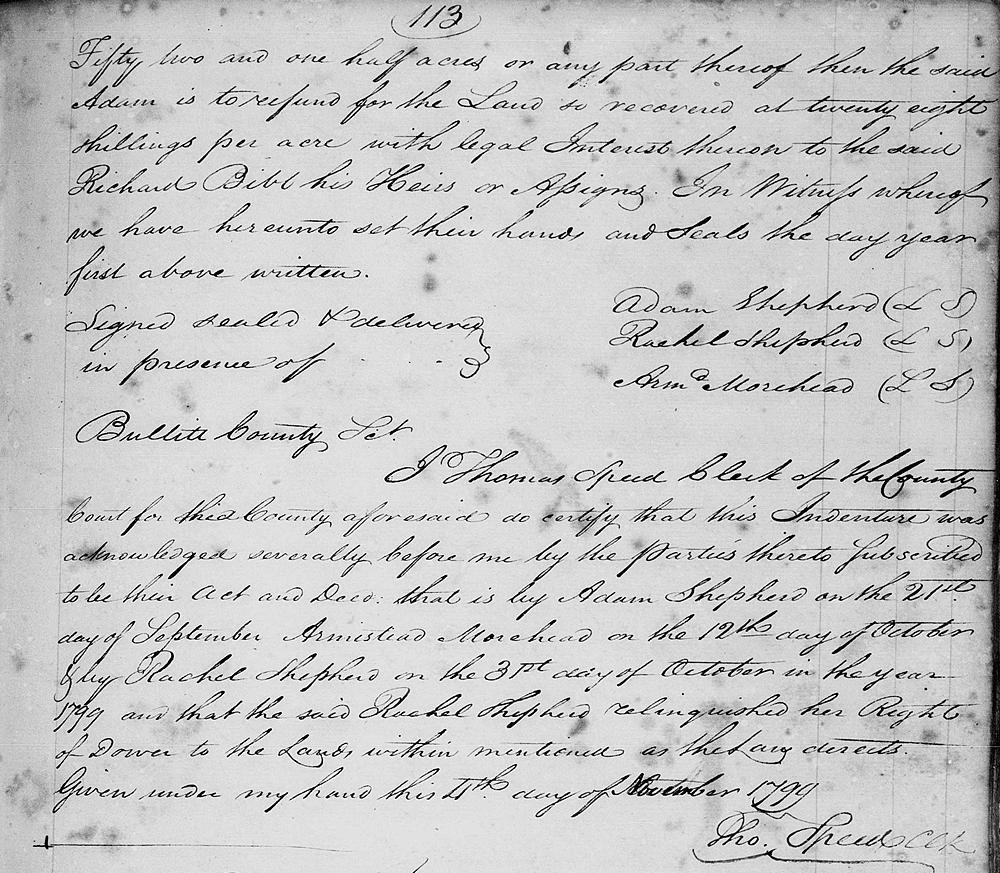 113
Fifty two and one half acres or any part thereof then the said
Adam is to refund for the Land so recovered at twenty eight
shillings per acre with legal Interest thereon to the said
Richard Bibb his Heirs or Assigns. In Witness whereof
we have hereunto set their hands and Seals the day year
first above written.
Signed sealed & delivered
in presence of
Adam Shepherd (L S)
Rachel Shepherd (L S)
Armd Morehead (L S)
Bullitt County Sct.
I Thomas Speed Clerk of the County
Court for the County aforesaid do certify that this Indenture was
acknowledged severally before me by the Parties thereto Subscribed
to be their Act and Deed: that is by Adam Shepherd on the 21st
day of September Armistead Morehead on the 12th day of October
& by Rachel Shepherd on the 31st day of October in the year
1799 and that the said Rachel Shepherd relinquished her Right
of Dower to the Lands within mentioned as the Law directs.
Given under my hand this 4th day of November 1799
Tho. Speed Clk